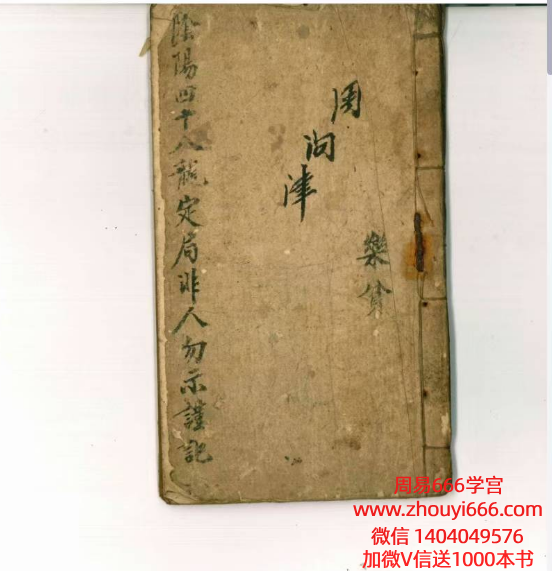 陰陽四十八龍定局非人勿示謹記
周問津
樂貧
周易666学宫
www.zhouyi666.com
微信 1404049576
加微V信送1000本书